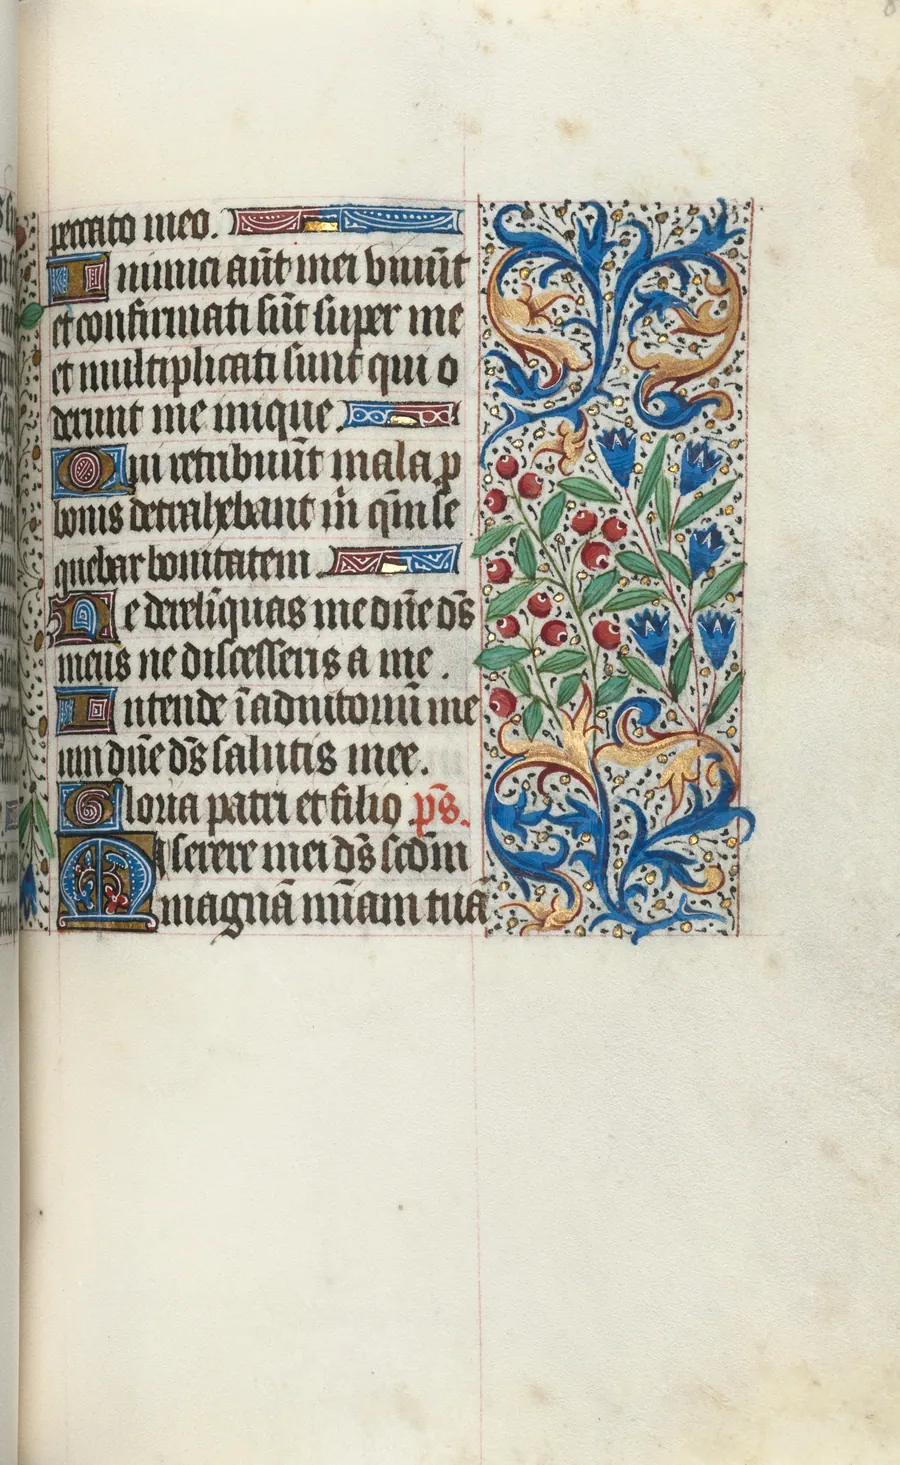 peccato meo.
Inimici aūt mei viuūt
et confirmati sūt super me
et multiplicati sunt qui o
derunt me inique.
Qui retribuūt mala p
bonis detrahebant m̄ qm̄ se
quebar bonitatem
Ne derelīquas me dn̄e ds̄
meus ne discesseris a me.
Intende ī adiutoriū me
um dn̄e ds̄ salutis mee.
Gloria patri et filio. ps̄.
Miserere mei ds̄ scdm̄
magnā mīam tuā